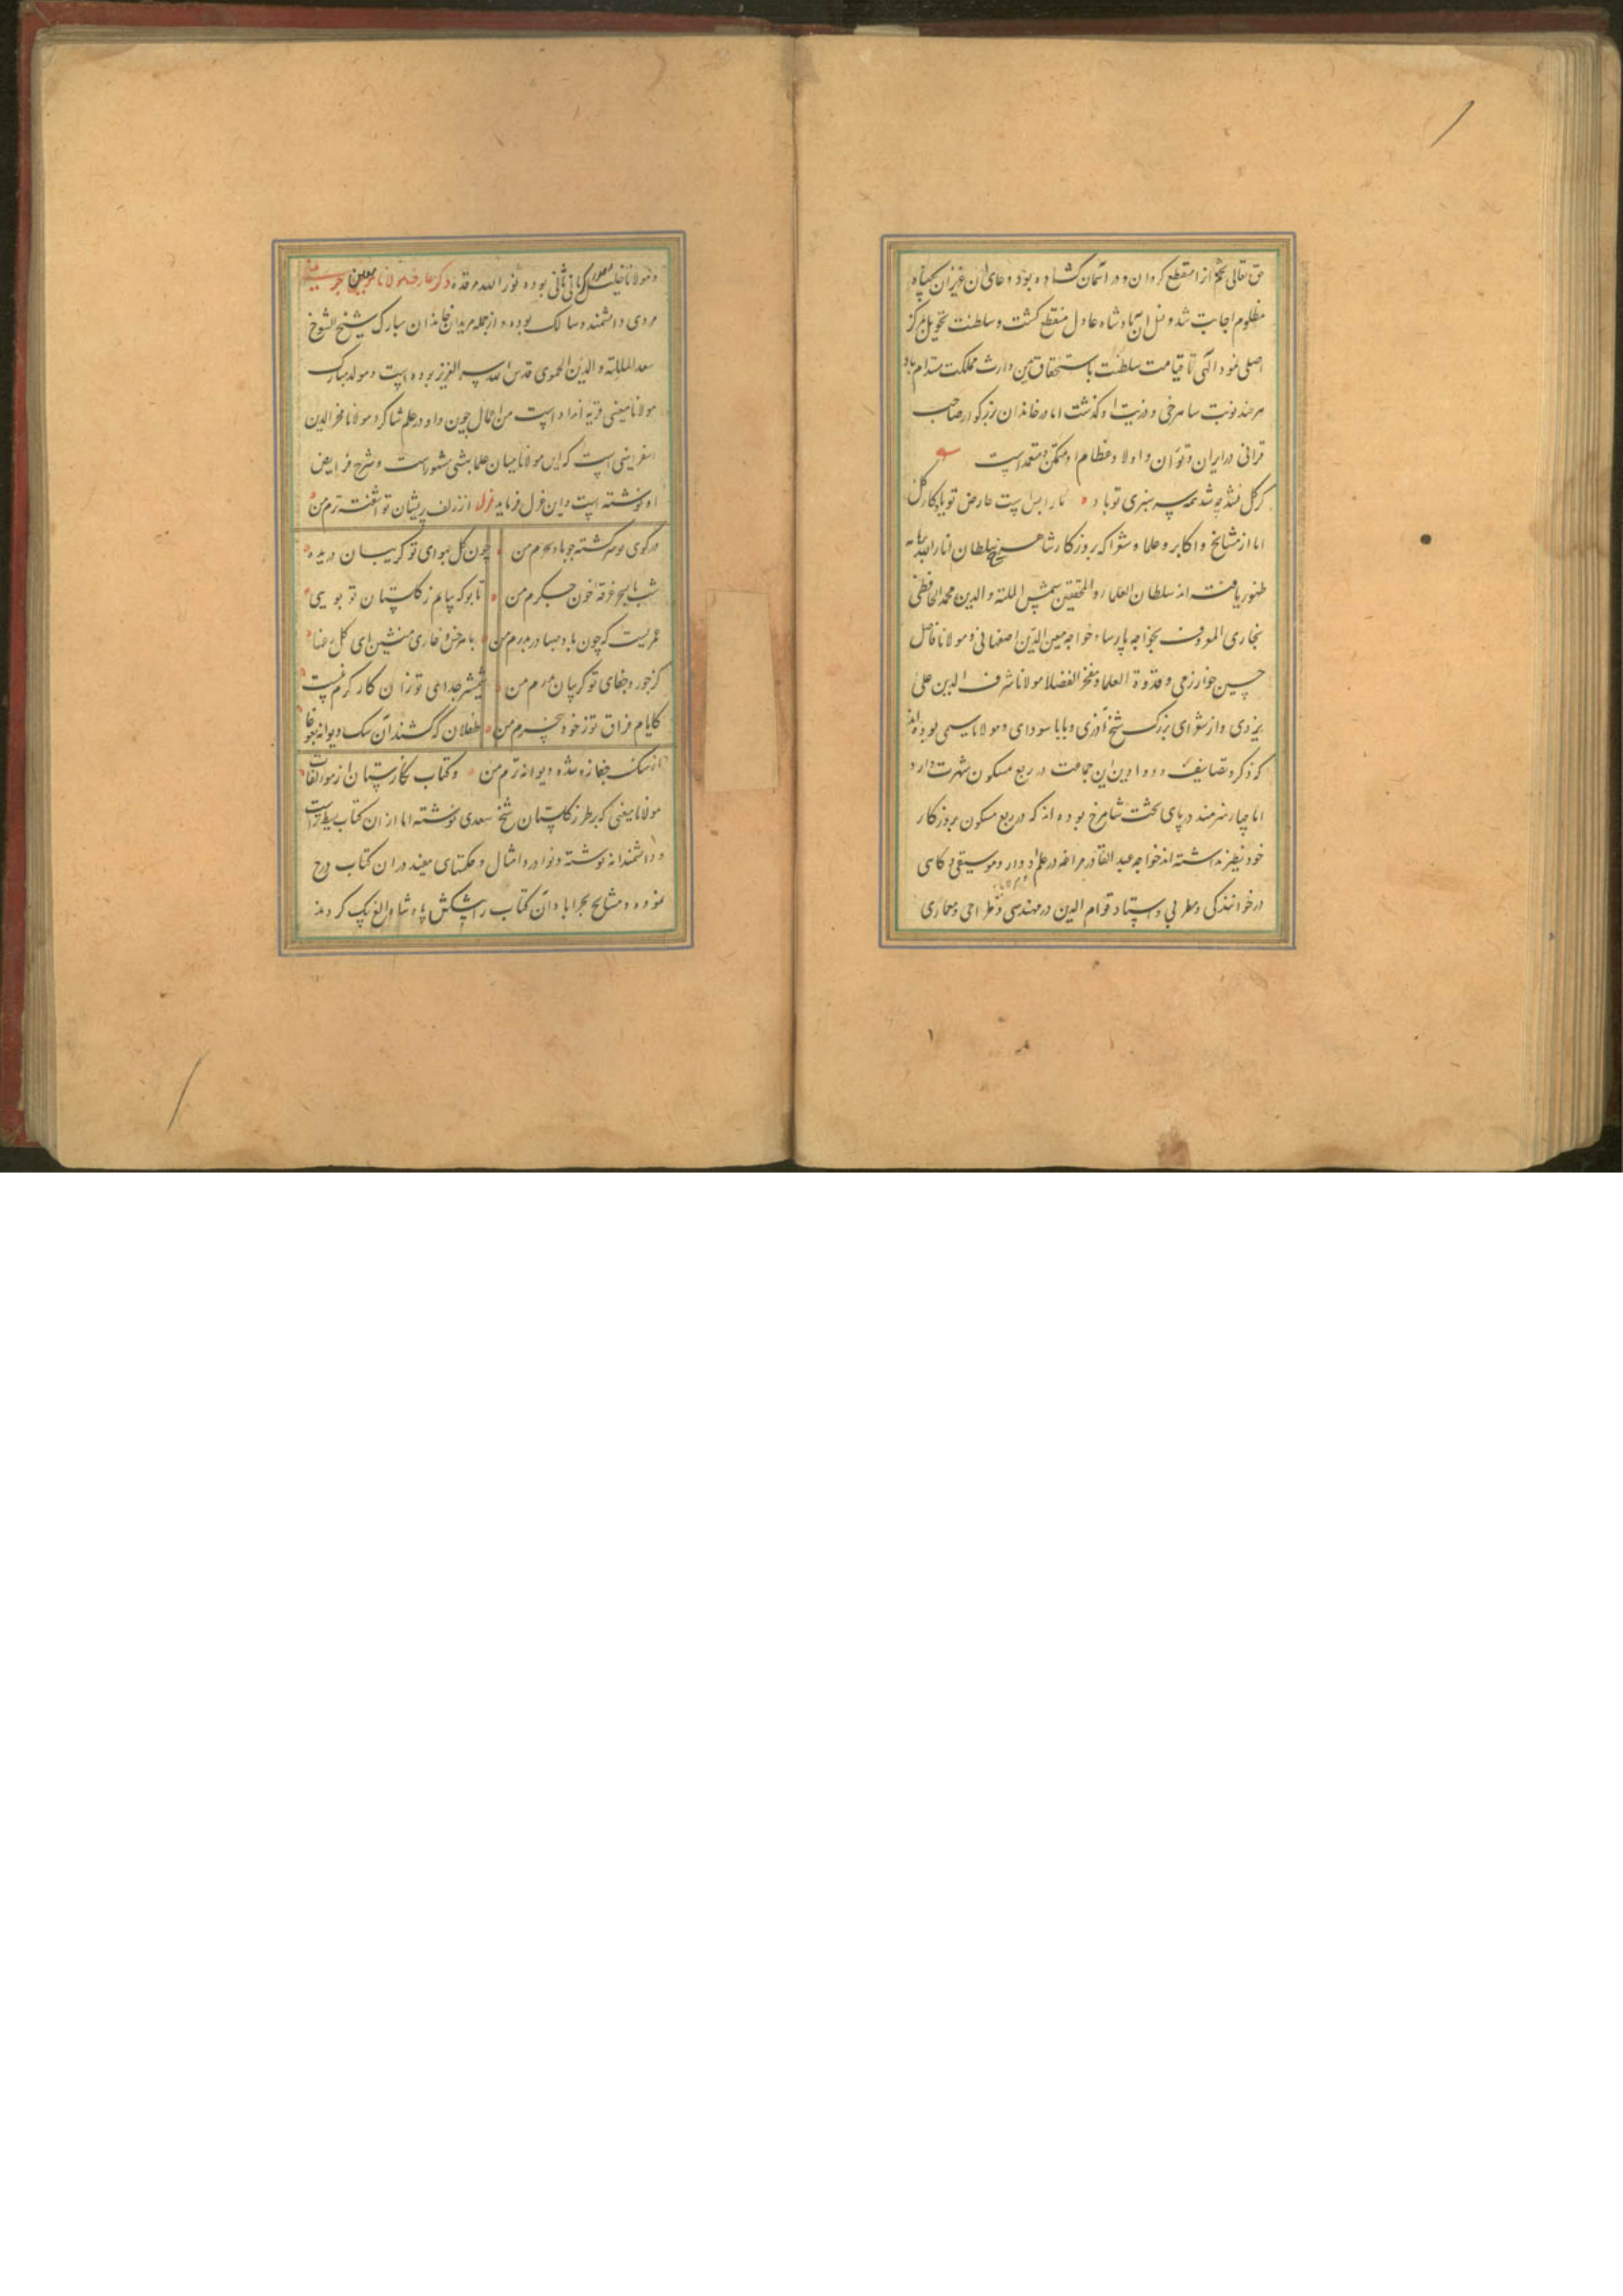 حق تعالی تخم او را منقطع کردان و در آسمان کشاده بود دعای آن عزیزان بیکناه
مظلوم اجابت شد و نسل آن پادشاه عادل منقطع کشت و سلطنت تحویل بمرکز
اصلی نمود الهی تا قیامت سلطنت باستحقاق بدین وارث مملکت مستدام باد
هر چند نوبت شاهرخی و ذریت او کذشت اما در خاندان بزرکوار صاحب
قرانی در ایران و توران و اولاد عظام او متمکن و معتمد است
کر کل بشد چه شد همه سرسبزی تو باد ما را بس است عارض تو یادکار کل
اما از مشایخ و اکابر و علما و شعرا که بروزکار شاهرخ سلطان انار الله برهانه
ظهور یافته‌اند سلطان العلما و المحققین شمس الملة و الدین محمد الحافظی
بخاری المعروف بخواجه پارسا و خواجه معین الدین اصفهانی و مولانا فاضل
حسین خوارزمی و قدوة العلما و مفخر الفضلا مولانا شرف الدین علی
یزدی و از شعرای بزرک شیخ آذری و بابا سودای و مولانا سیمی بوده‌اند
که ذکر و تصانیف و دواوین این جماعت در ربع مسکون شهرت دارد
اما چهار هنرمند در پای تخت شاهرخ بوده اند که در ربع مسکون بروزکار
خود نظیر نداشته اند خواجه عبد القادر مراغه در علم ادوار و موسیقی و کاهی
در خوانندکی و مطربی و استاد قوام الدین در مهندسی و طراحی و معماری
و مولانا خلیل مصور که مانی ثانی بوده نور الله مرقده ذکر عارف مولانا معین جوینی
مردی دانشمند و سالک بوده و از جمله مریدان خاندان مبارک شیخ الشیوخ
سعد الملة و الدین الحموی قدس الله سره العزیز بوده است و مولد مبارک
مولانا معینی قریه انداد است من اعمال جوین و او در علم شاکرد مولانا فخر الدین
اسفراینی است که این مولانا میان علما بشتی مشهور است و شرح فرایض
او نوشته است و این غزل فرماید غزل از زلف پریشان تو آشفته‌ترم من
در کوی تو سرکشته چو باد سحرم من چون کل بهوای تو کریبان دریده
شب تا بسحر غرقه بخون جکرم من تا بو که بیابم ز کلستان تو بویی
عمریست که چون باد صبا در بدرم من با هر خس و خاری منشین ای کل رعنا
کز جور و جفای تو کریبان بدرم من شمشیر جدای تو زان کارکرم نیست
کایام فراق تو ز خود بیخبرم من طفلان که کشند آن سک دیوانه بغوغا
از سنک جفا زو شده دیوانه‌ترم من و کتاب نکارستان از مؤلفات
مولانا معینی که بر طرز کلستان شیخ سعدی نوشته اما از آن کتاب بسیط‌تر است
و دانشمندانه نوشته و نوادر و امثال و حکمتهای مفید در آن کتاب درج
نموده و مشایخ بحراباد آن کتاب را پیشکش پادشاه الغ بیک کردند